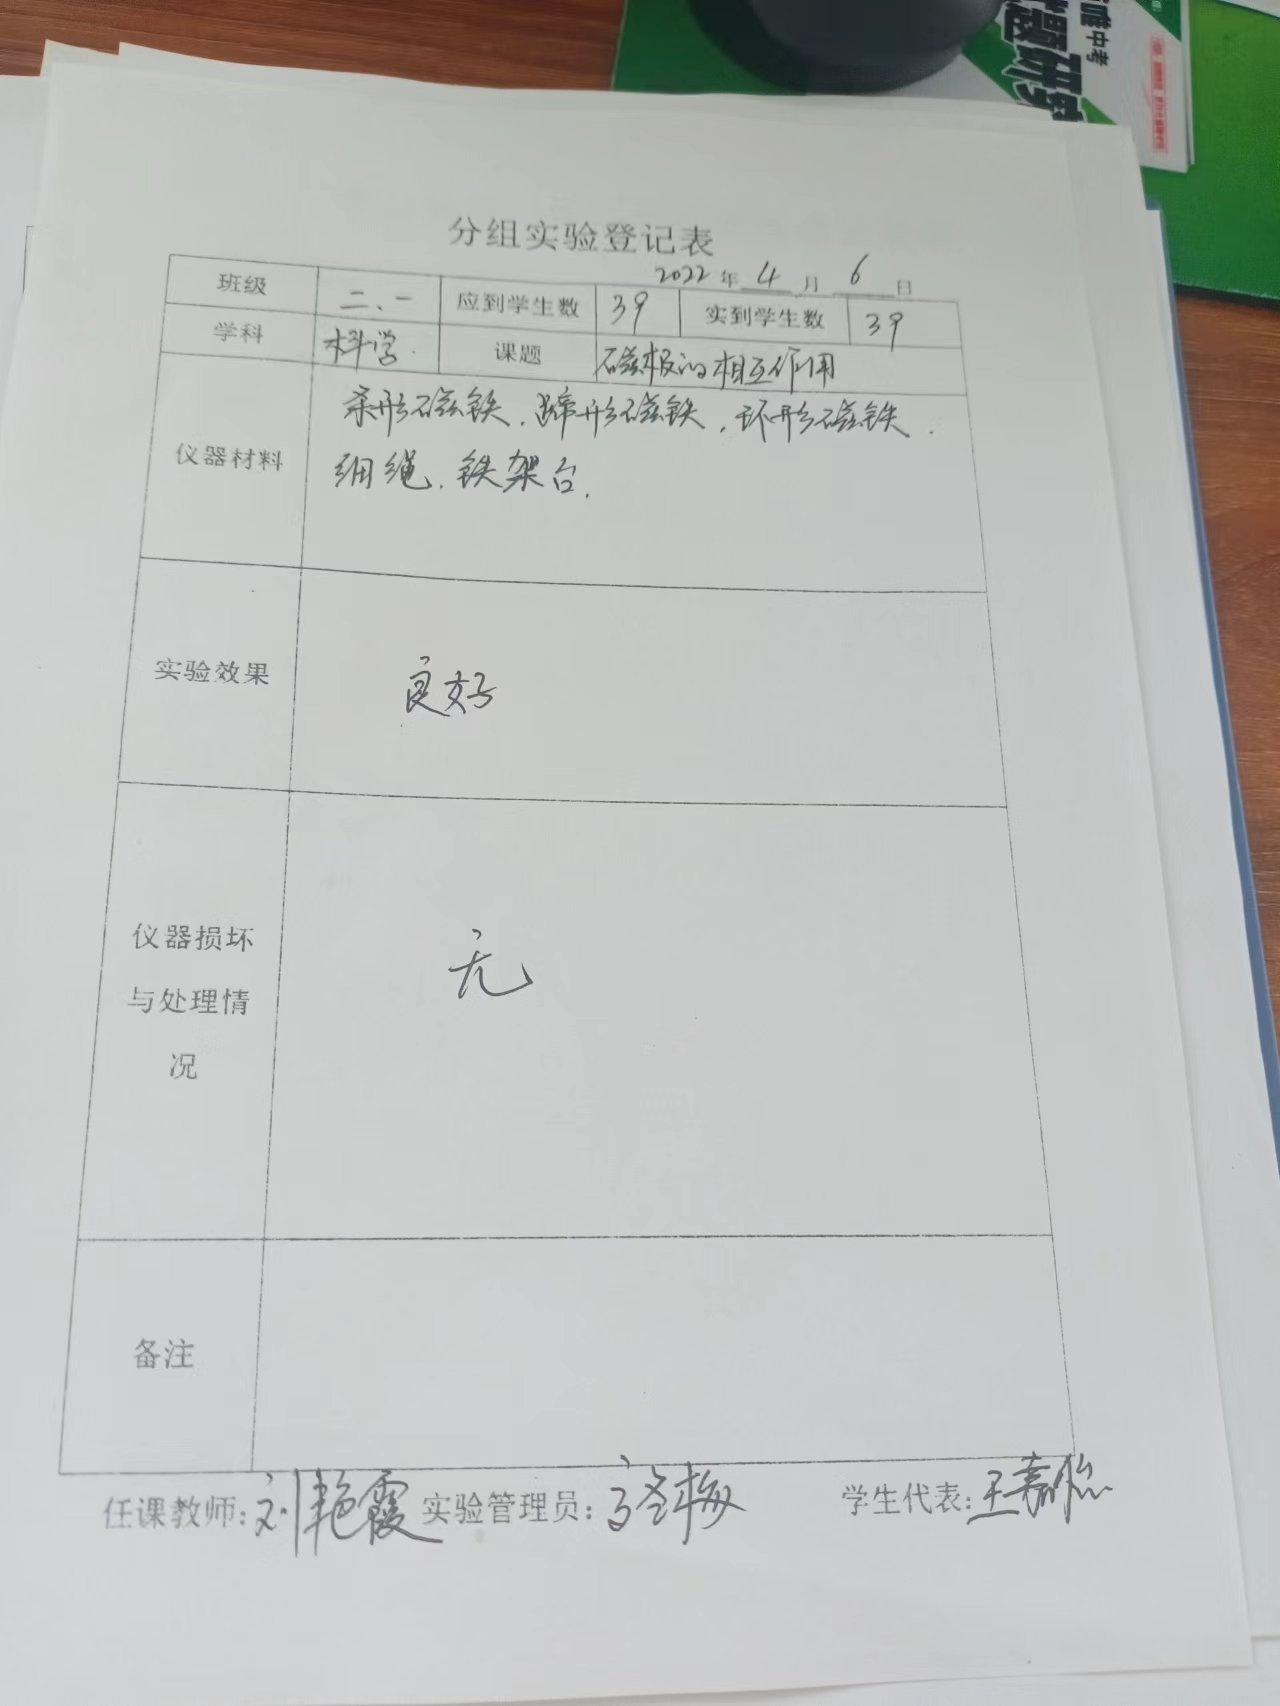 分组实验登记表
2022年 4 月 6 日
班级 二、一 应到学生数 39 实到学生数 39
学科 科学. 课题 磁极的相互作用
仪器材料 条形磁铁、蹄形磁铁、环形磁铁、
细绳、铁架台.
实验效果 良好
仪器损坏
与处理情
况
无
备注
任课教师:刘艳霞 实验管理员:高圣梅 学生代表:王嘉怡
中考
题研究